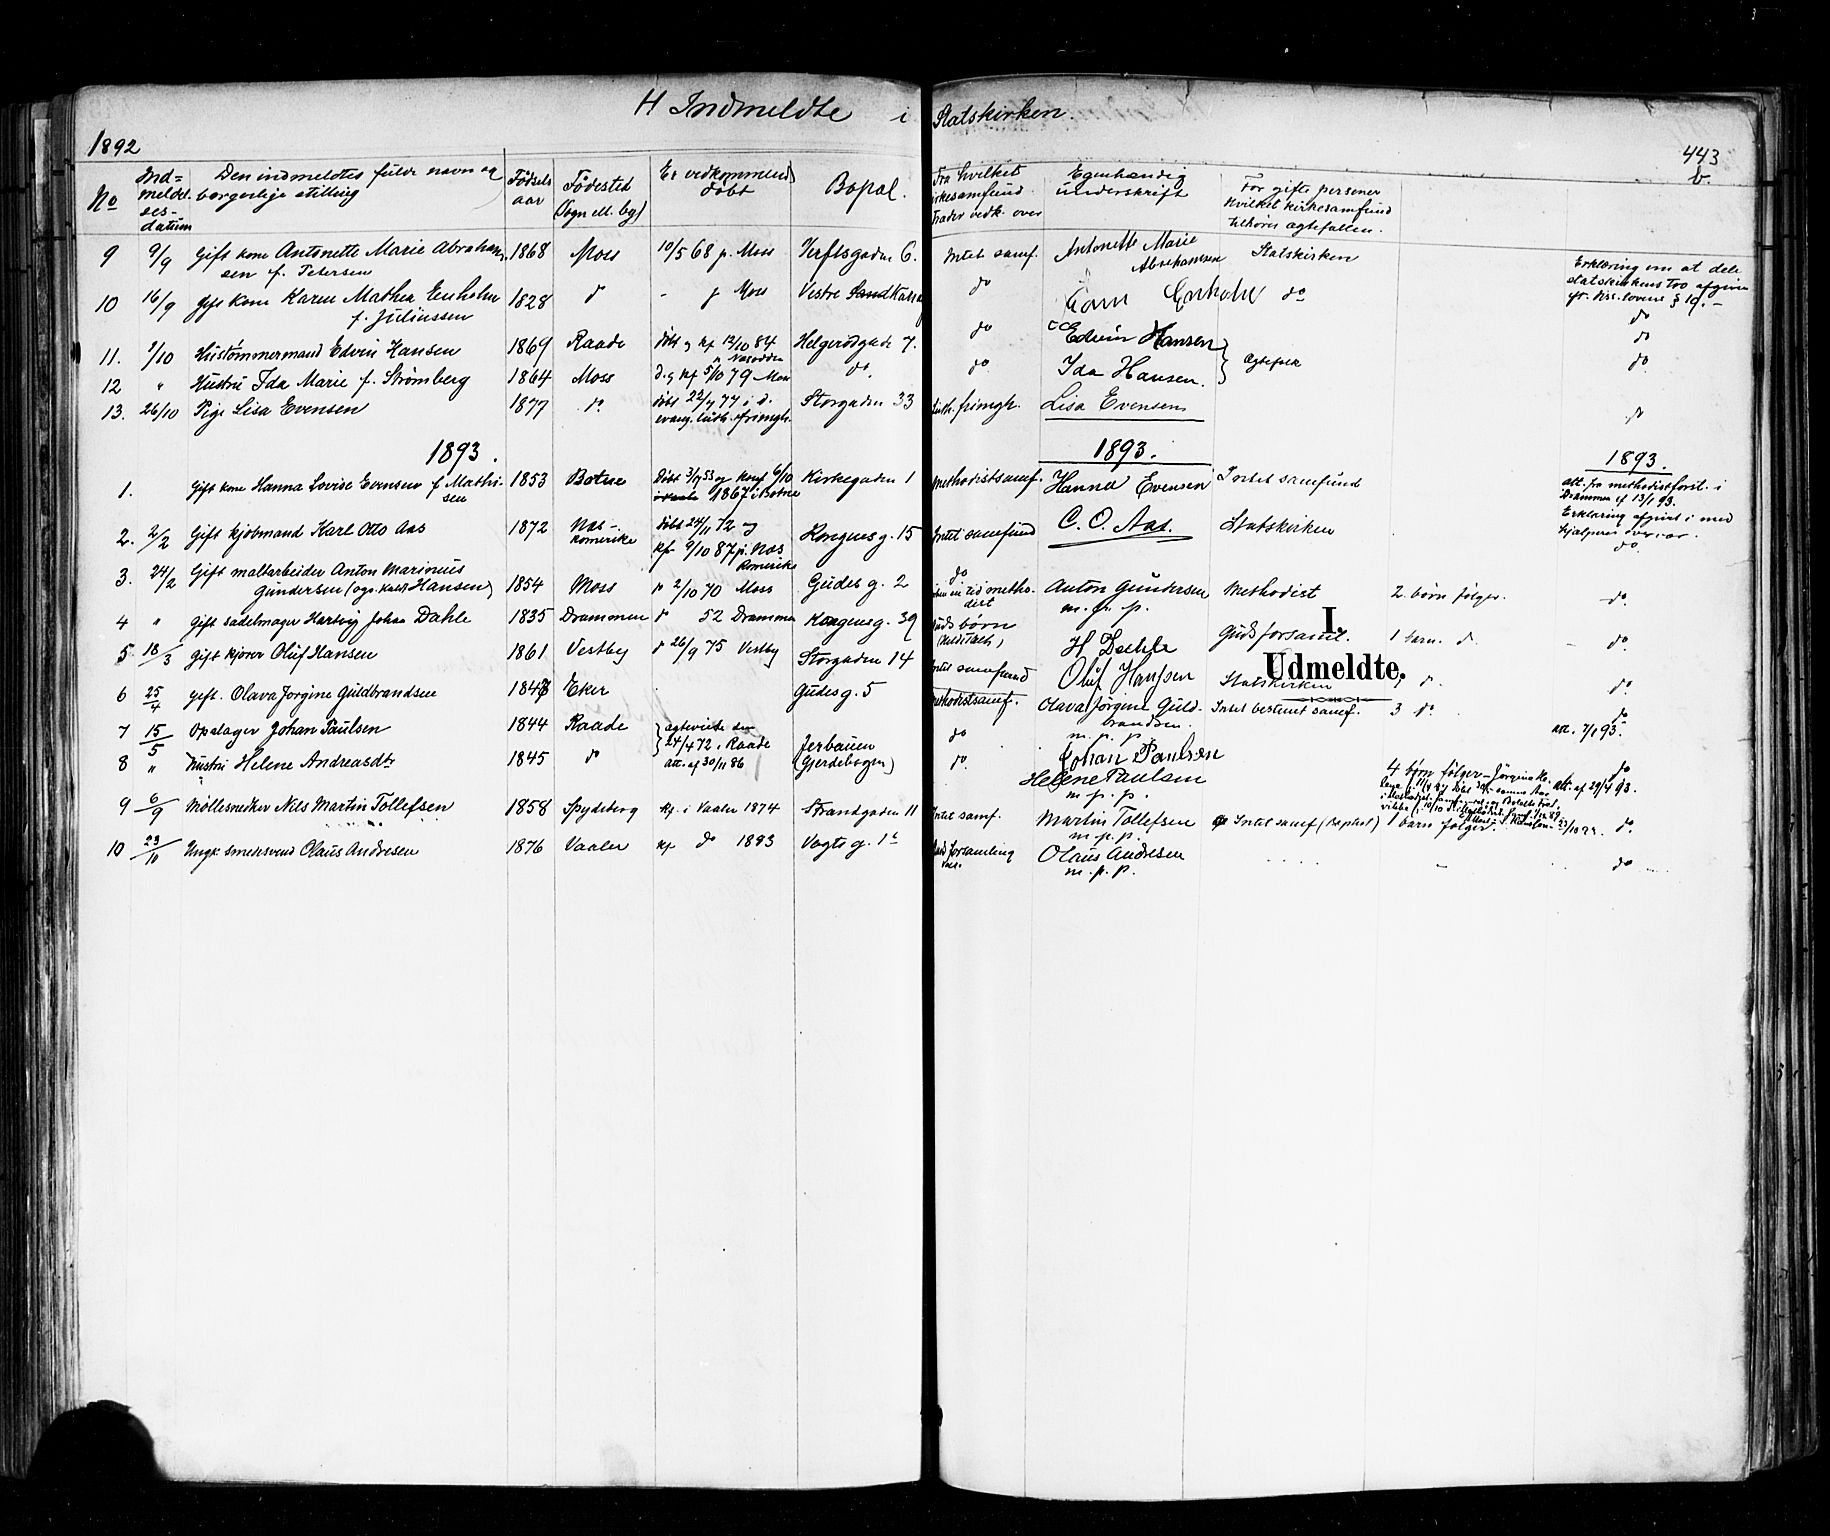 H Indmeldte i Statskirken.
1892
443
b.
No
Ind=
meldel-
ses-
datum
Den indmeldtes fulde navn og
borgerlige stilling
Fødsels
aar
Fødested
(sogn ell. by)
Er vedkommende
døbt
Bopæl.
Fra hvilket
kirkesamfund
træder vedk. over
Egenhændig
underskrift
For gifte personer
hvilket kirkesamfund
tilhører ægtefællen.
9 9/9 Gift kone Antonette Marie Abraham
sen f. Petersen 1868 Moss 10/5 68 p. Moss Verftsgaden 6. Intet samf. Antonette Marie
Abrahamsen Statskirken
Erklæring om at dele
statskirkens tro afgiven
eft. diss. lovens § 19.-
10 16/9 Gift kone Karen Mathea Enholm
f. Juliussen 1828 do - p Moss Vestre do Enholm do do
11. 1/10 Hustømmermand Edvin Hansen 1869 Raade døbt og kf 12/10 84
p Næsodden Helgerødgade 7. do Edvin Hansen Ægtepar do
12 " Hustru Ida Marie f. Strømberg 1864 Moss d. og kf 5/10 79 Moss do. do Ida Hansen. do
13. 26/10 Pige Lisa Evensen 1877 do døbt 22/7 77 i d.
evang. luth. frimgh. Storgaden 33 luth. frimgh. Lisa Evensen do
1893. 1893. 1893.
1. Gift kone Hanna Lovise Evensen f. Mathi-
sen 1853 Botne Døbt 3/4 53 og konf 6/10
1867 i Botne Kirkegaden 1 Methodistsamf. Hanna Evensen Intet samfund
att. fra methodistforst. i
Drammen af 13/1 93.
Erklæring afgivet i med
hjælperes overvær.
2. 2/2 Gift kjøbmand Karl Otto Aas 1872 Næs-
Romerike døbt 24/11 72 og
kf 9/10 87 p. Næs
Romerike Kongens g. 15 Intet samfund C. O. Aas. Statskirken do
3. 24/2 Gift maltarbeider Anton Marinius
Gundersen (ogs. kald. Hansen) 1854 Moss p 2/10 70 Moss Gudes g. 2 do
metho-
dist Anton Gundersen
m. p. p. Methodist 2 børn følger. do.
4 " Gift sadelmager Hartvig Johan Dahle 1835 Drammen do 52 Drammen Kongensg. 39 Guds børn H Dahle Guds forsaml. 1 barn. d. do.
5 18/3 Gift kjører Oluf Hansen 1861 Vestby do 26/9 75 Vestby Storgaden 14 Intet samfund Oluf Hansen Statskirken d. do
6 25/4 Gift. Olava Jørgine Guldbrandsen 1847 Eker Gudes g. 5 Methodistsamf. Olava Jørgine Guld-
brandsen.
m. p. p. Intet bestemt samf. 3 do. do
att. 7/1 93.
7 15/5 Opslager Johan Paulsen 1844 Raade ægteviede den
24/4 72 i Raade
att. af 30/11 86 Jerbauen
(Gjerdebogen) do Johan Paulsen
8 " Hustru Helene Andreasdtr 1845 do do. Helene Paulsen
m. p. p. 4 børn følger - do
att. af 29/4 93.
9 6/9 Møllesnedker Nils Martin Tollefsen 1858 Spydeberg kf. i Vaaler 1874 Strandgaden 11 Intet samf. Martin Tollefsen
m. p. p. Intet samf (Baptist) 1 barn følger. do.
10 23/11 Ungk. smedsvend Olaus Andresen 1876 Vaaler kf do 1893 Vogts g. 1 forsamling Olaus Andresen
m. p. p. - do
I.
Udmeldte.